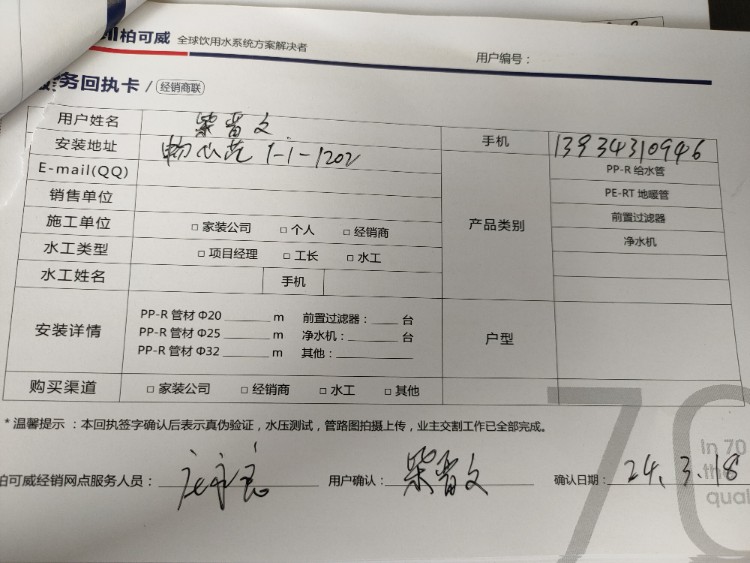 柏可威 全球饮用水系统方案解决者
用户编号：
服务回执卡 / 经销商联
用户姓名 柴晋文 手机 13934310946
安装地址 1-1-1202 产品类别 PP-R 给水管
E-mail(QQ) PE-RT 地暖管
销售单位 前置过滤器
施工单位 □ 家装公司 □ 个人 □ 经销商 净水机
水工类型 □ 项目经理 □ 工长 □ 水工
水工姓名 手机
安装详情 PP-R 管材 Φ20 m 前置过滤器： 台 户型
PP-R 管材 Φ25 m 净水机： 台
PP-R 管材 Φ32 m 其他：
购买渠道 □ 家装公司 □ 经销商 □ 水工 □ 其他
* 温馨提示 ：本回执签字确认后表示真伪验证，水压测试，管路图拍摄上传，业主交割工作已全部完成。
70
In 70
the
qual
柏可威经销网点服务人员： 用户确认： 柴晋文 确认日期： 24.3.18